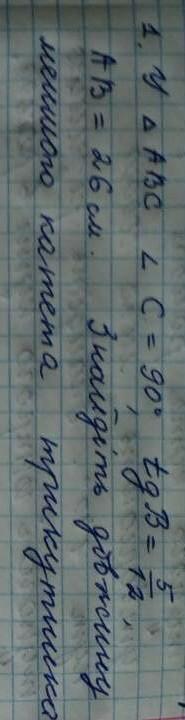 1. У △ ABC ∠ C = 90°, tg B = 5/12,
AB = 26 см. Знайдіть довжину
меншого катета трикутника